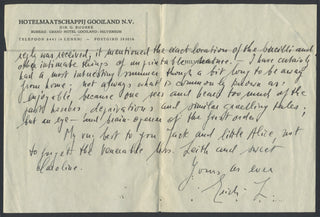 HOTELMAATSCHAPPIJ GOOILAND N.V.
DIR. G. BOOSKE
BUREAU: GRAND HOTEL GOOILAND - HILVERSUM
TELEFOON 8441 (4 LIJNEN) - POSTGIRO
reply was received; it mentioned the exact location of the bacilli and
other intimate things of my I have certainly
had a most interesting summer though a bit long to be away
from home; not always what is commonly known as
enjoyable because one sees and hears too much of the
deprivations and similar gruelling rules;
but an eye- and brain-opener of the first order
My very best to you Jack and little Alice, not
to forget the venerable Mrs. Leith and sweet
Yours, as ever